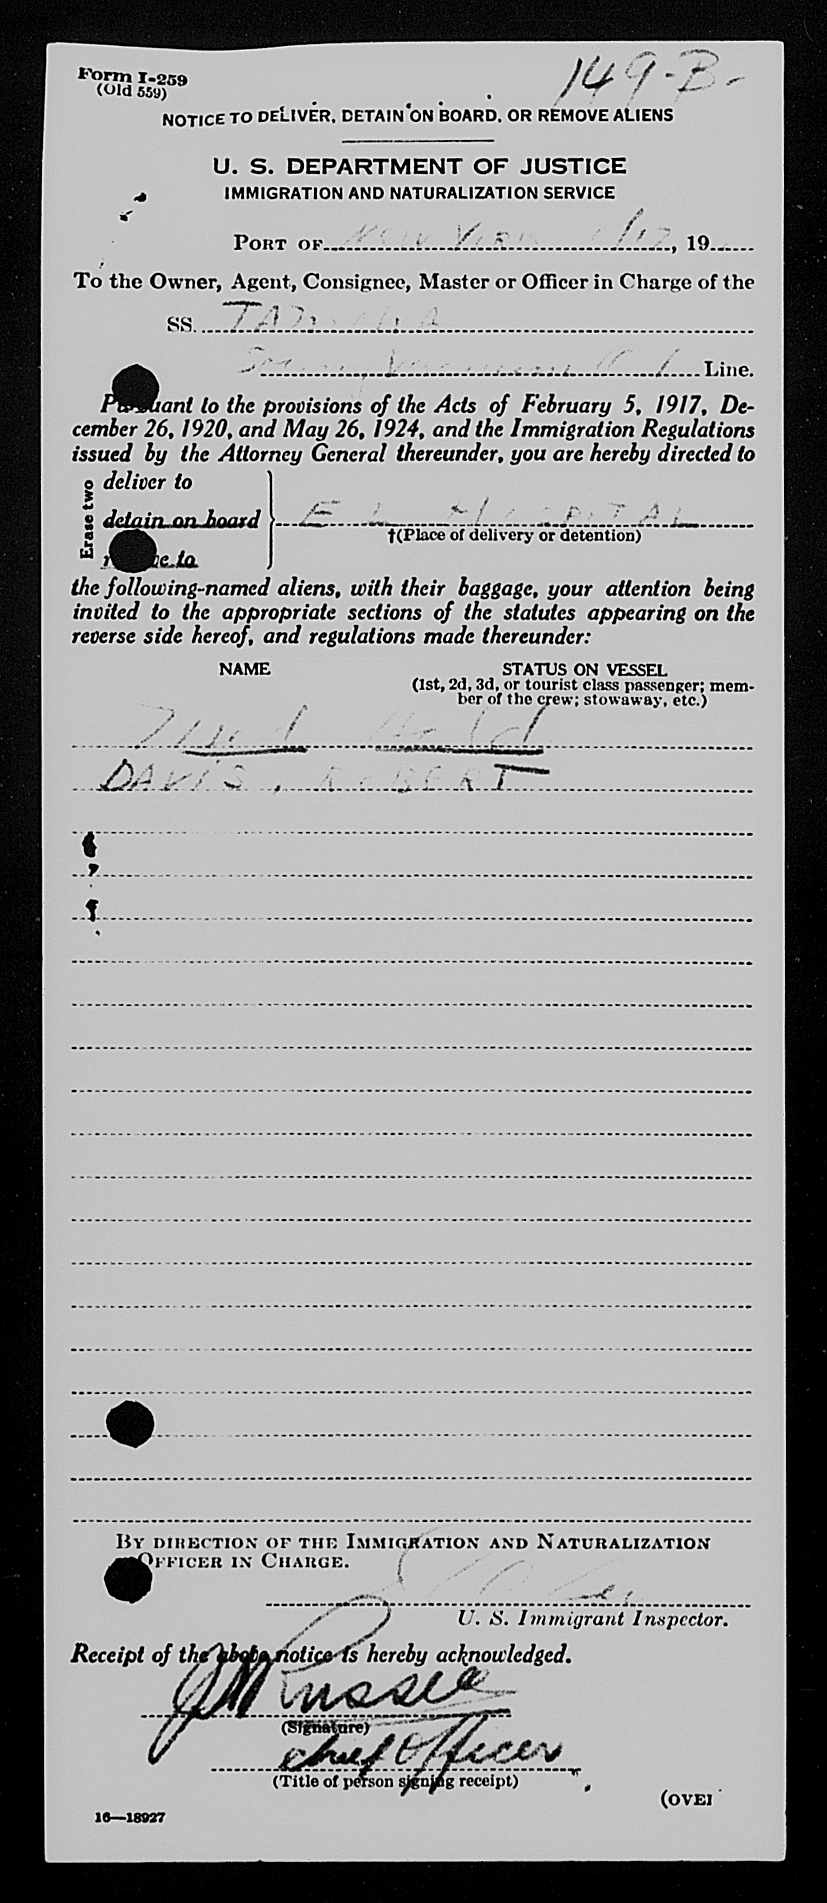 Form I-259
(Old 559)
149-B-
NOTICE TO DELIVER, DETAIN ON BOARD, OR REMOVE ALIENS
U. S. DEPARTMENT OF JUSTICE
IMMIGRATION AND NATURALIZATION SERVICE
PORT OF NEW YORK /17, 19
To the Owner, Agent, Consignee, Master or Officer in Charge of the
SS.
Line.
Pursuant to the provisions of the Acts of February 5, 1917, De-
cember 26, 1920, and May 26, 1924, and the Immigration Regulations
issued by the Attorney General thereunder, you are hereby directed to
Erase two
deliver to
detain on board
E I HOSPITAL
†(Place of delivery or detention)
remove to
the following-named aliens, with their baggage, your attention being
invited to the appropriate sections of the statutes appearing on the
reverse side hereof, and regulations made thereunder:
NAME
STATUS ON VESSEL
(1st, 2d, 3d, or tourist class passenger; mem-
ber of the crew; stowaway, etc.)
Med Hold
DAVIS, ROBERT
BY DIRECTION OF THE IMMIGRATION AND NATURALIZATION
OFFICER IN CHARGE.
U. S. Immigrant Inspector.
Receipt of the above notice is hereby acknowledged.
(Signature)
Chief Officer
(Title of person signing receipt)
(OVER
16—18927